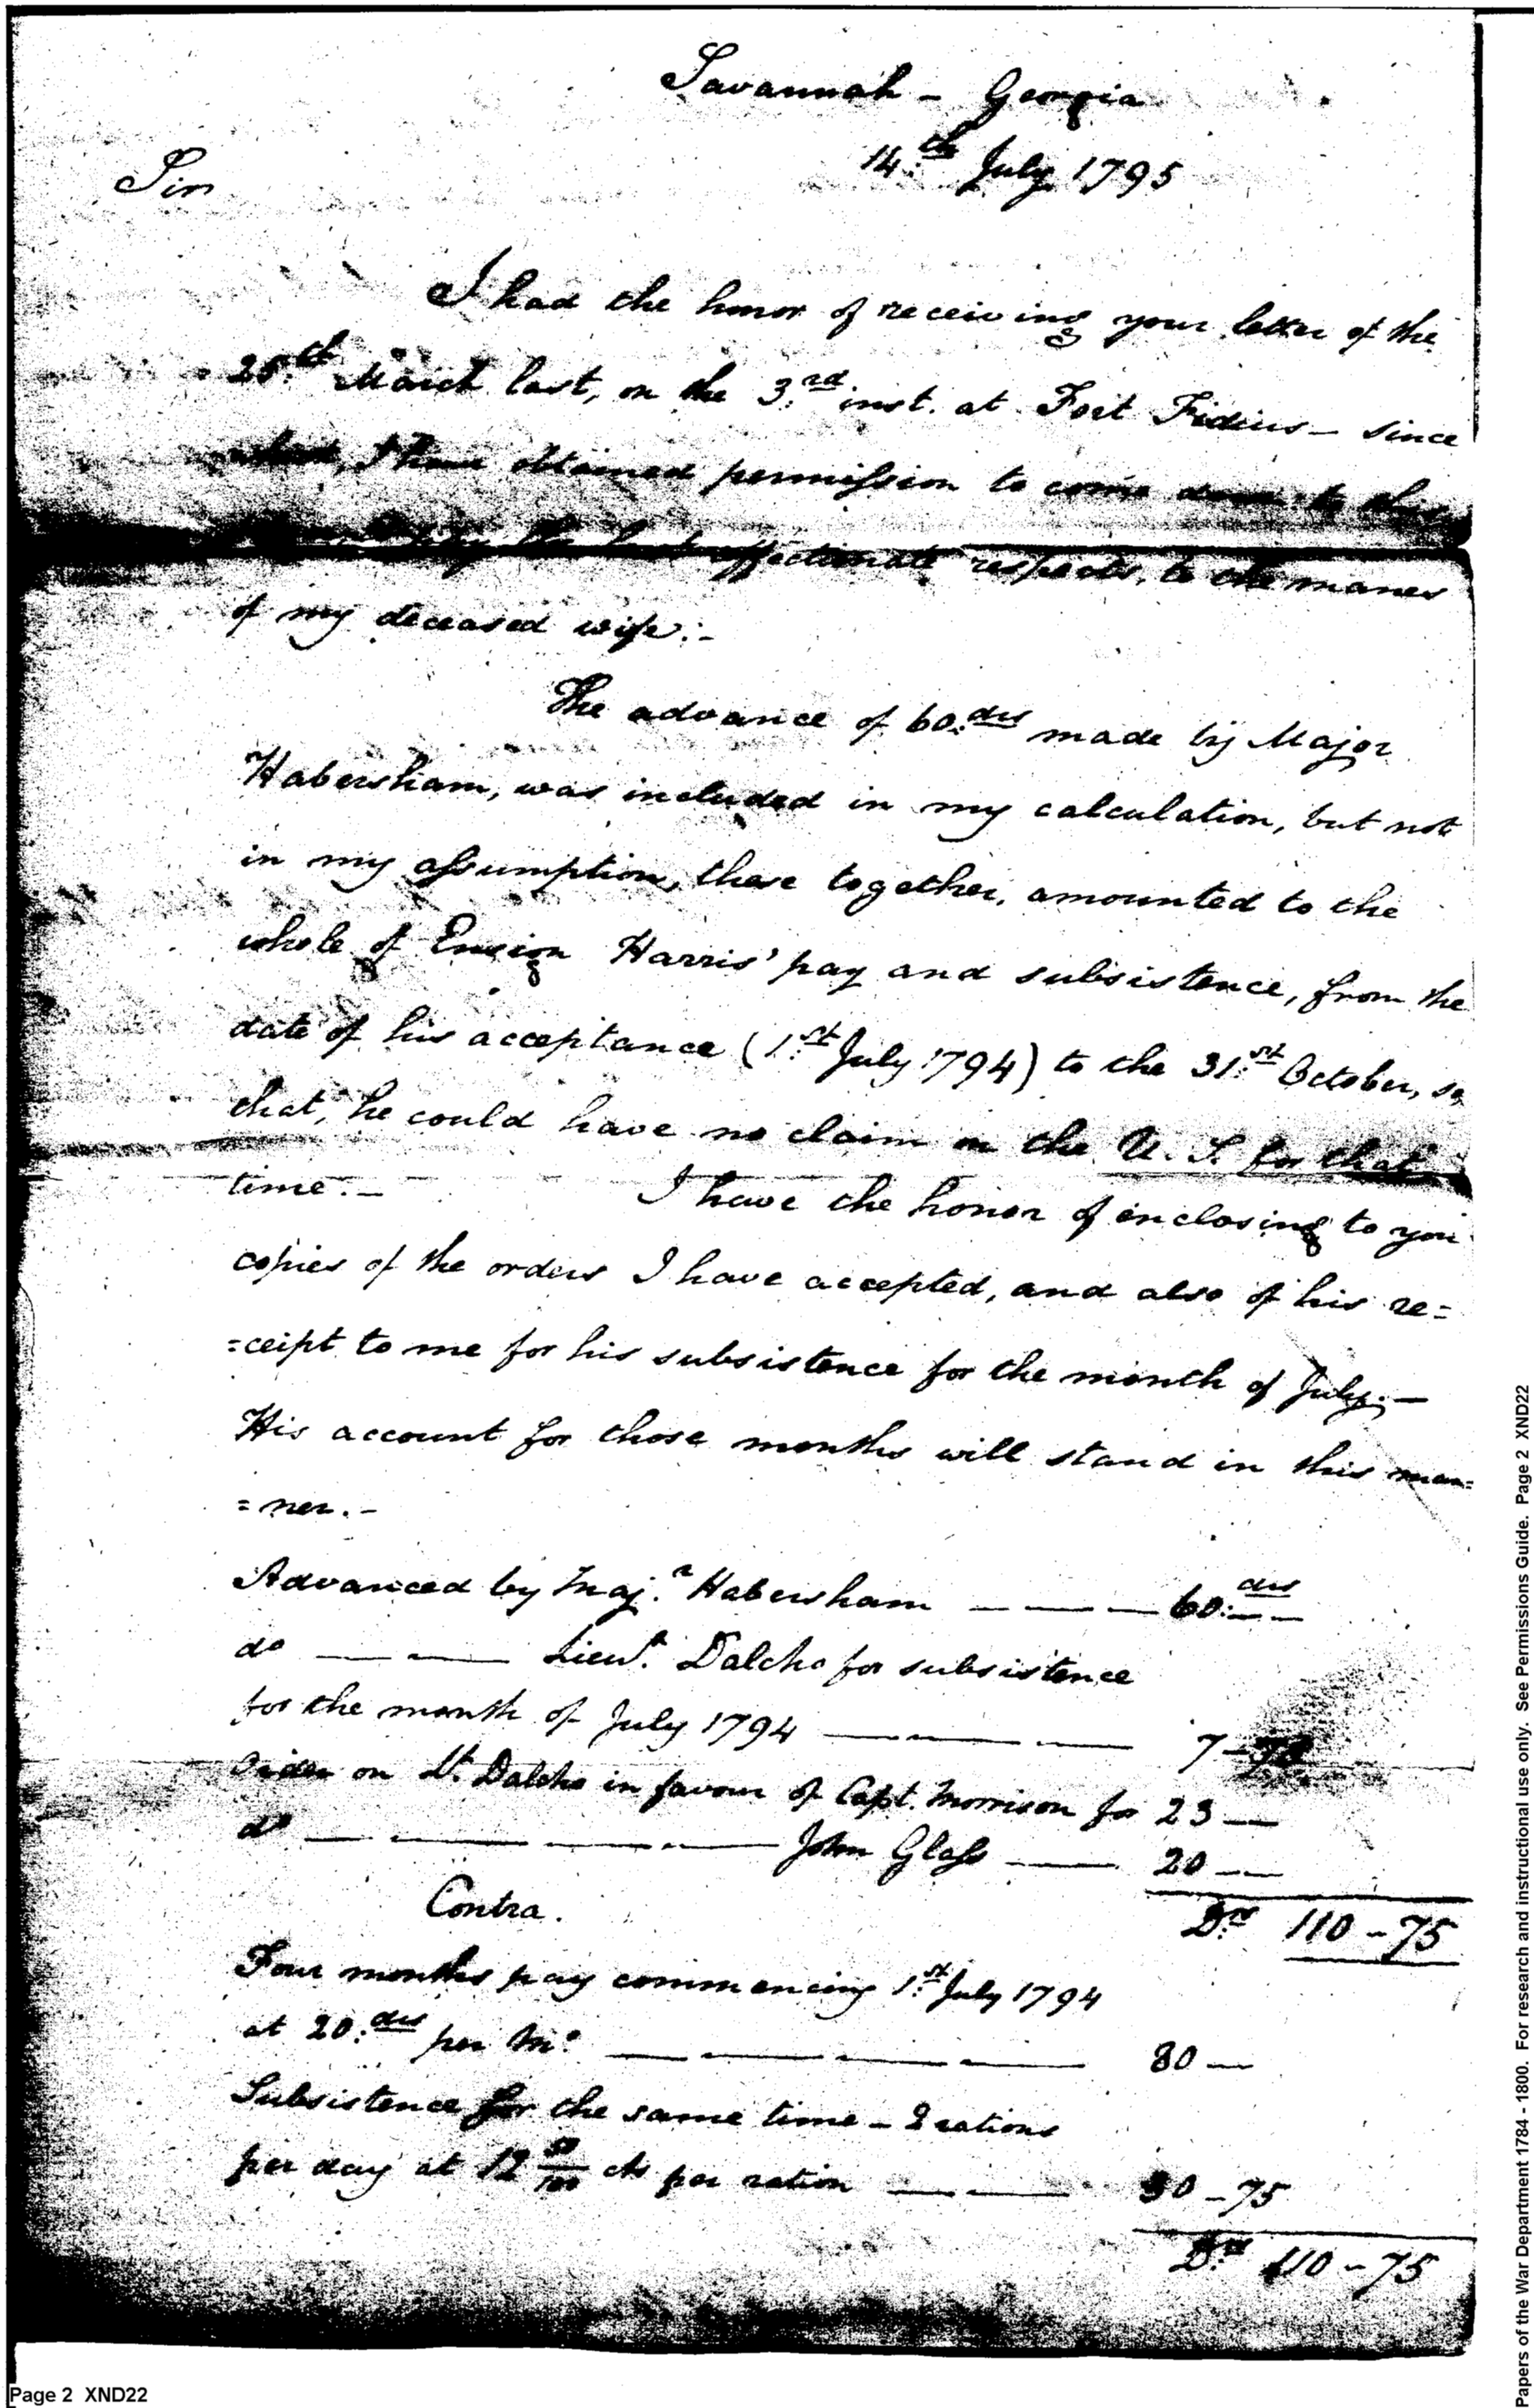 Savannah - Georgia
14.th July 1795
Sir
I had the honor of receiving your letter of the
25.th March last, on the 3.rd inst. at Fort Fidius - since
which, I have obtained permission to come down to this
the last affectionate respects, to the manes
of my deceased wife.-
The advance of 60.drs made by Major
Habersham, was included in my calculation, but not
in my assumption, these together, amounted to the
whole of Ensign Harris' pay and subsistence, from the
date of his acceptance (1.st July 1794) to the 31.st October, so
that, he could have no claim on the U. S. for that
time.- I have the honor of enclosing to you
copies of the orders I have accepted, and also of his re=
=ceipt to me for his subsistence for the month of July.-
His account for those months will stand in this man=
=ner.-
Advanced by Maj.r Habersham — — — 60.drs — —
do — — Lieu.t Dalcho for subsistence
for the month of July 1794 — — — 7-75
Order on Lt. Dalcho in favour of Capt. Morrison for 23 —
do — — — — John Glass — 20 —
Drs 110-75
Contra.
Four months pay commencing 1.st July 1794
at 20.drs per Mo. — — — — 80 —
Subsistence for the same time - 2 rations
per day at 12 50/100 cts per ration — — 30-75
Drs 110-75
Page 2 XND22
Papers of the War Department 1784 - 1800. For research and instructional use only. See Permissions Guide. Page 2 XND22